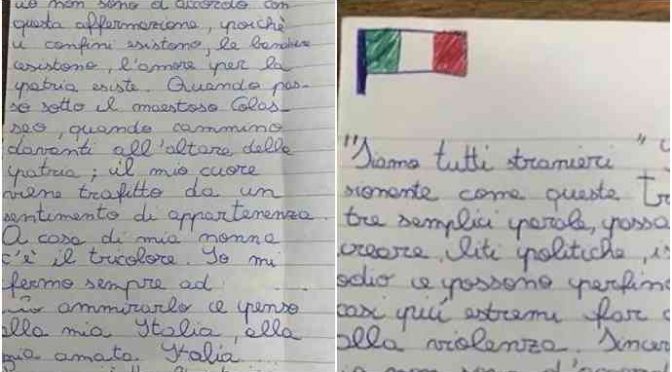 io non sono d'accordo con
questa affermazione, poichè
i confini esistono, le bandiere
esistono, l'amore per la
patria esiste. Quando pas-
so sotto il maestoso Colos-
seo, quando cammino
davanti all'altare della
patria; il mio cuore
viene trafitto da un
sentimento di appartenenza.
A casa di mia nonna
c'è il tricolore. Io mi
fermo sempre ad
ammirarlo e penso
alla mia Italia, alla
mia amata Italia
"Siamo tutti stranieri"
sionante come queste
tre semplici parole,
creare, liti politiche,
odio e possono
casi più estremi far
alla violenza.
non sono d'